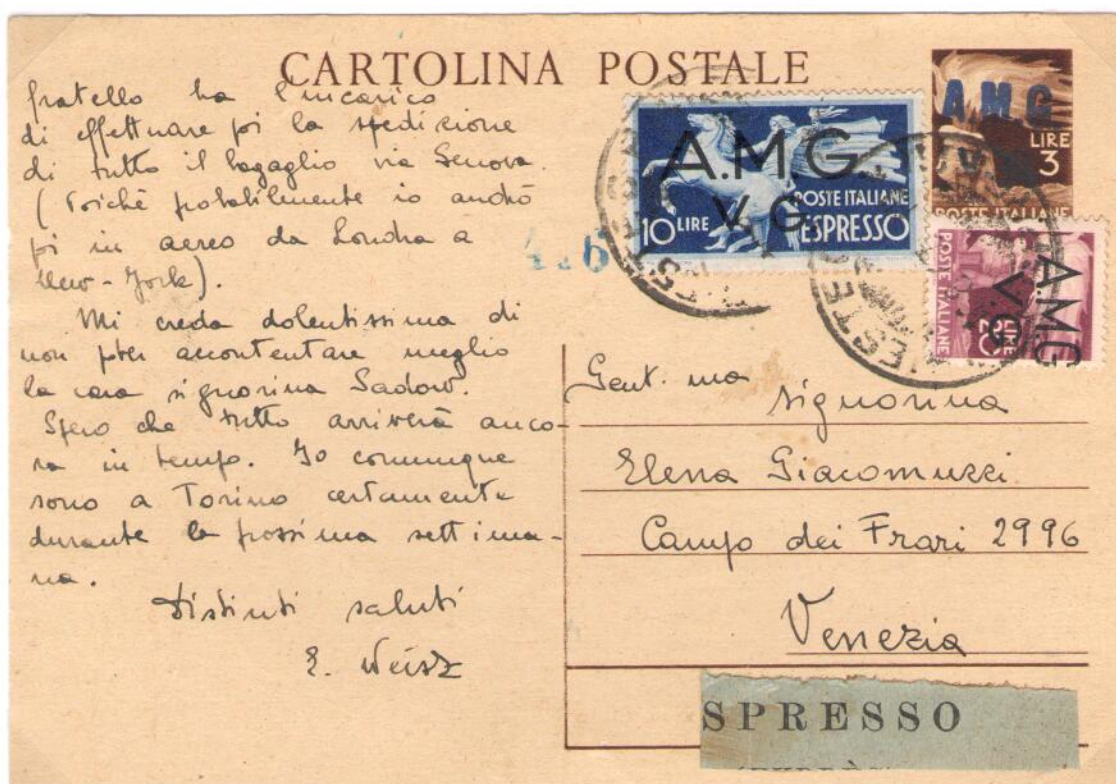 CARTOLINA POSTALE
fratello ha l'incarico
di effettuare poi la spedizione
di tutto il bagaglio via Genova.
(Poiché probabilmente io andrò
poi in aereo da Londra a
New-York).
Mi creda dolentissima di
non poter accontentare meglio
la cara signorina Sadow.
Spero che tutto arriverà anco-
ra in tempo. Io comunque
sono a Torino certamente
durante la prossima settima-
na.
Distinti saluti
E. Weisz
A.M.G.
V.G.
POSTE ITALIANE
10 LIRE ESPRESSO
A.M.G.
LIRE
3
POSTE ITALIANE
A.M.G.
V.G.
POSTE ITALIANE
LIRE
TRIESTE
Gent. ma
signorina
Elena Giacomuzzi
Campo dei Frari 2996
Venezia
SPRESSO